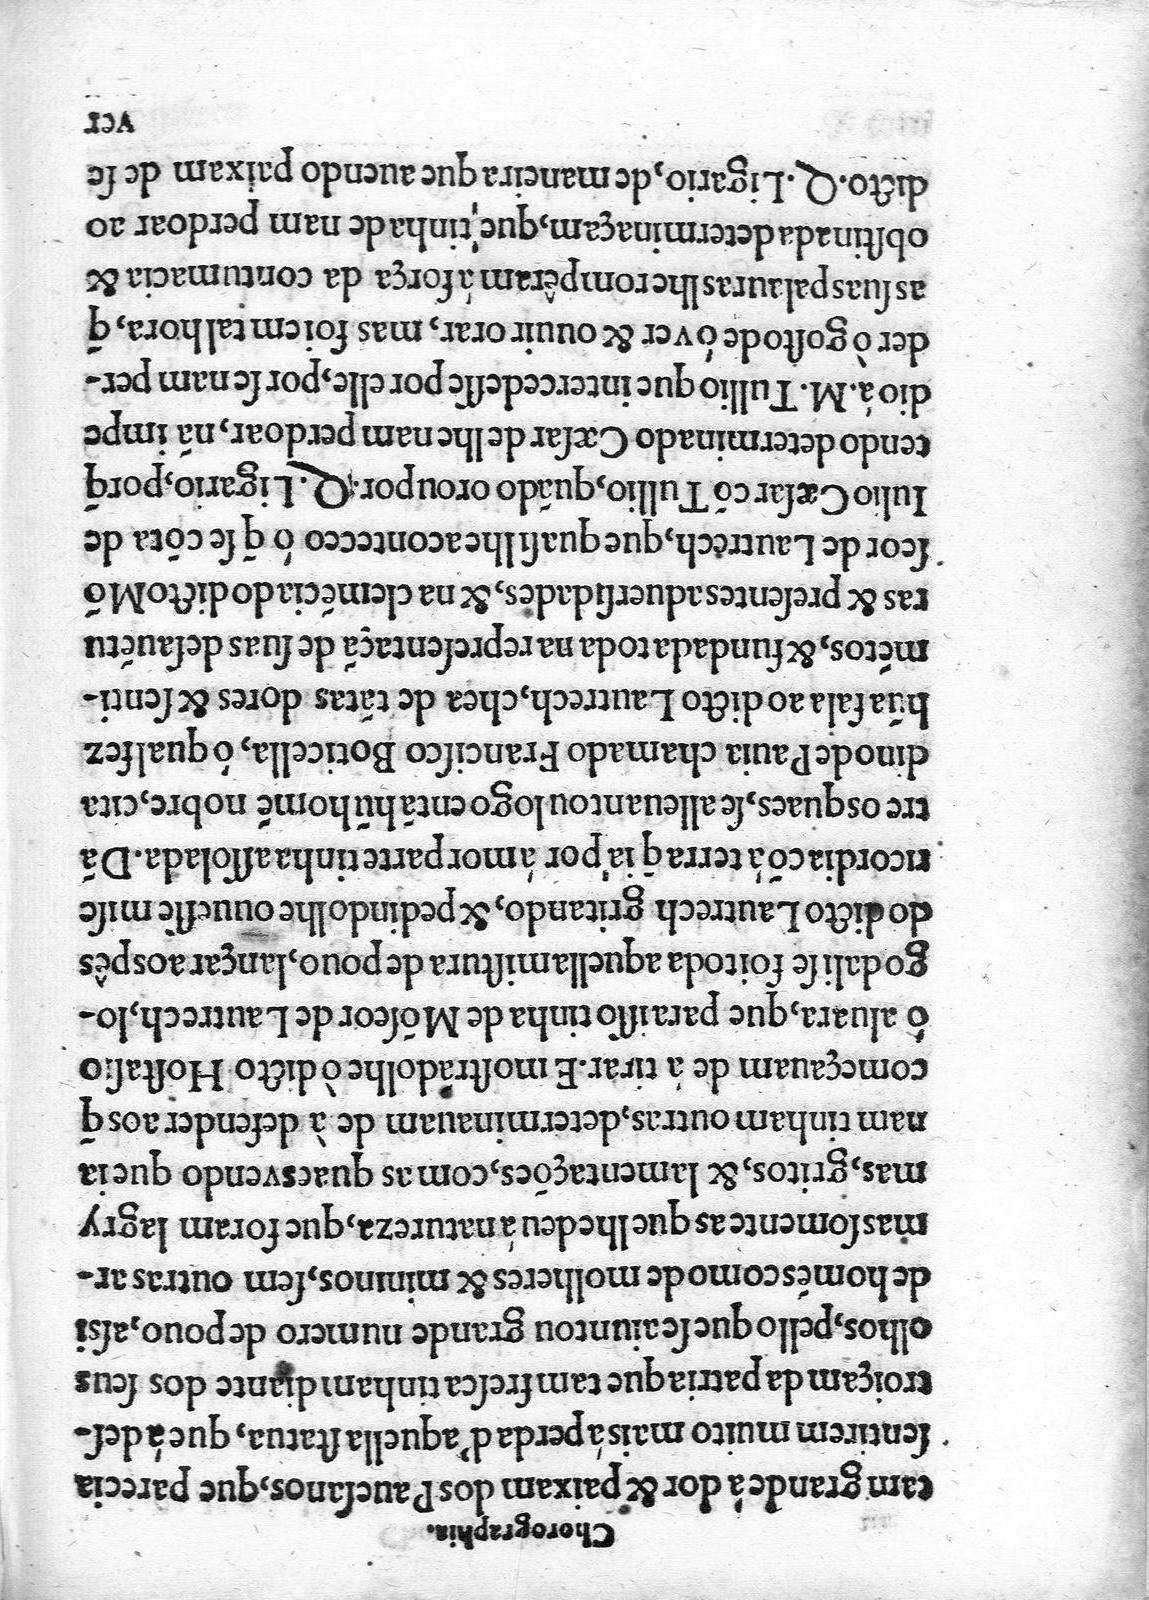 Chorographia.
tam grande á dor & paixam dos Pauesanos, que parecia
sentirem muito mais á perda d'aquella statua, que á des-
troiçam da patria que tam fresca tinham diante dos seus
olhos, pello que se aiuntou grande numero de pouo, assi
de homẽs como de molheres & mininos, sem outras ar-
mas somente as que lhe deu á natureza, que foram lagry
mas, gritos, & lamentações, com as quaes vendo que ia
nam tinham outras, determinauam de à defender aos q̃
começauam de à tirar. E mostrãdolhe ò dicto Hostasio
ó aluara, que para isso tinha de Mõseor de Lautrech, lo-
go dali se foi toda aquella mistura de pouo, lançar aos pês
do dicto Lautrech gritando, & pedindolhe ouuesse mise
ricordia cõ á terra q̃ ia' por á mor parte tinha assolada. Dã
tre os quaes, se alleuantou logo entã hũ homẽ nobre, cita
dino de Pauia chamado Francisco Boticella, ó qual fez
hũa fala ao dicto Lautrech, chea de tãtas dores & senti-
mẽtos, & fundada toda na representaçã de suas desauẽtu
ras & presentes aduersidades, & na clemẽcia do dicto Mõ
seor de Lautrech, que quasi lhe aconteceo ó q̃ se cõta de
Iulio Cæsar cõ Tullio, quãdo orou por. Q. Ligario, porq̃
tendo determinado Cæsar de lhe nam perdoar, nã impe
dio á. M. Tullio que intercedesse por elle, por se nam per-
der ò gosto de ó ver & ouuir orar, mas foi em tal hora, q̃
as suas palauras lhe rompêram á força da contumacia &
obstinada determinaçam, que, tinha de nam perdoar ao
dicto. Q. Ligario, de maneira que auendo paixam de se
ver